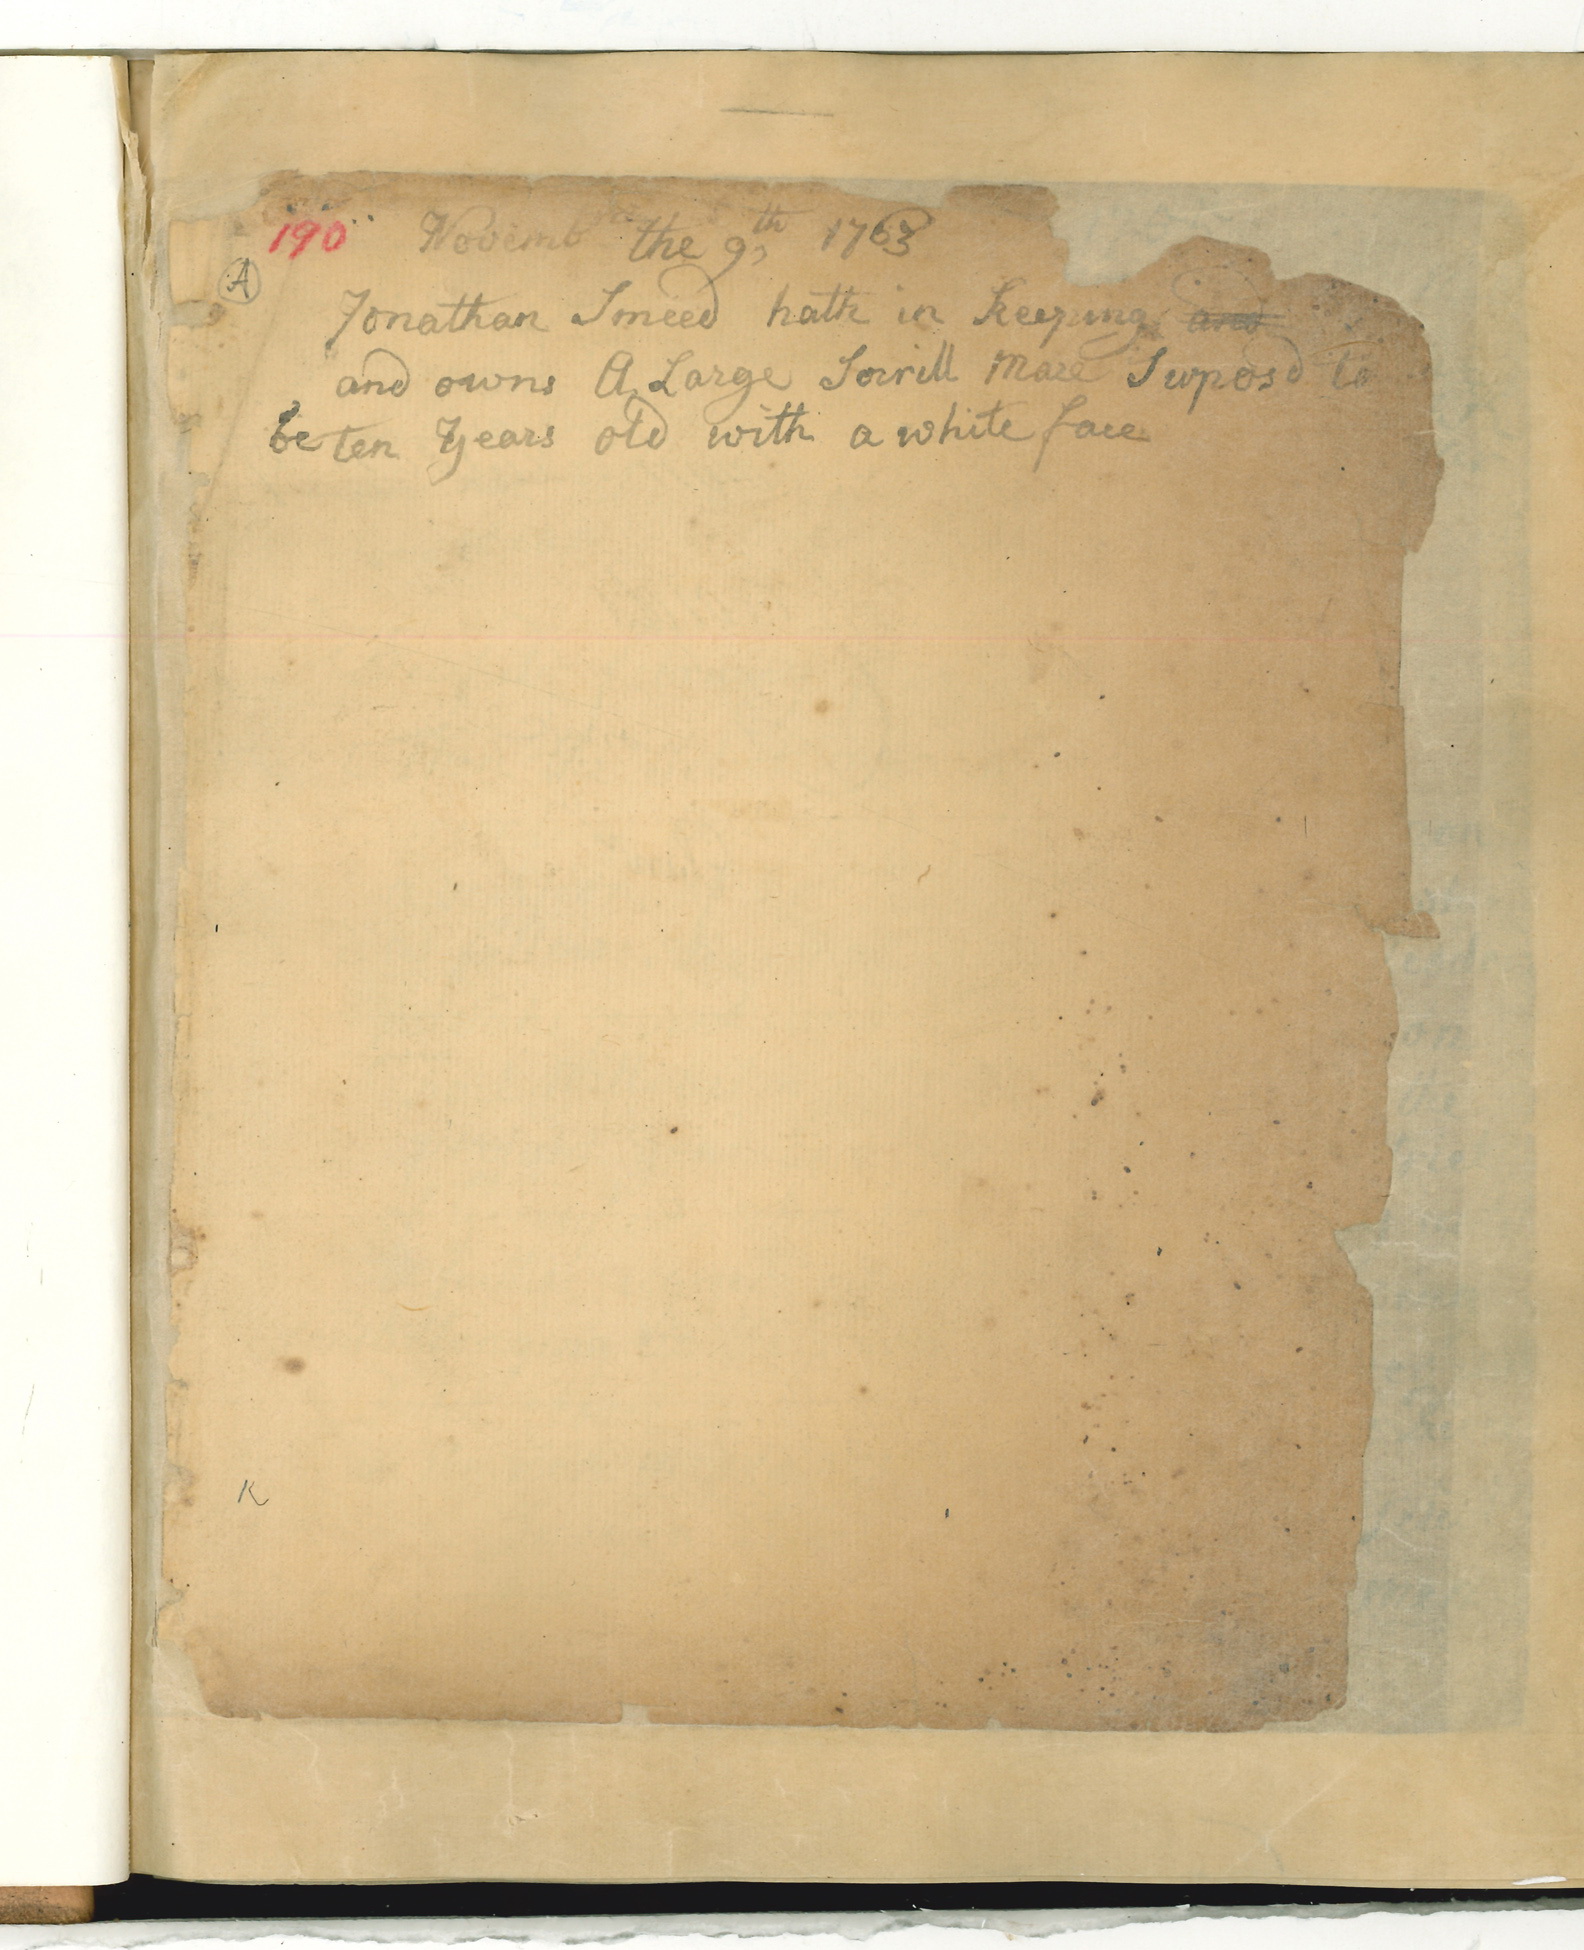 190 Novemb the 9th 1763
A
Jonathan Smeed hath in keeping and
and owns A Large Sorrill Mare Suposd to
be ten Years old with a white face
K